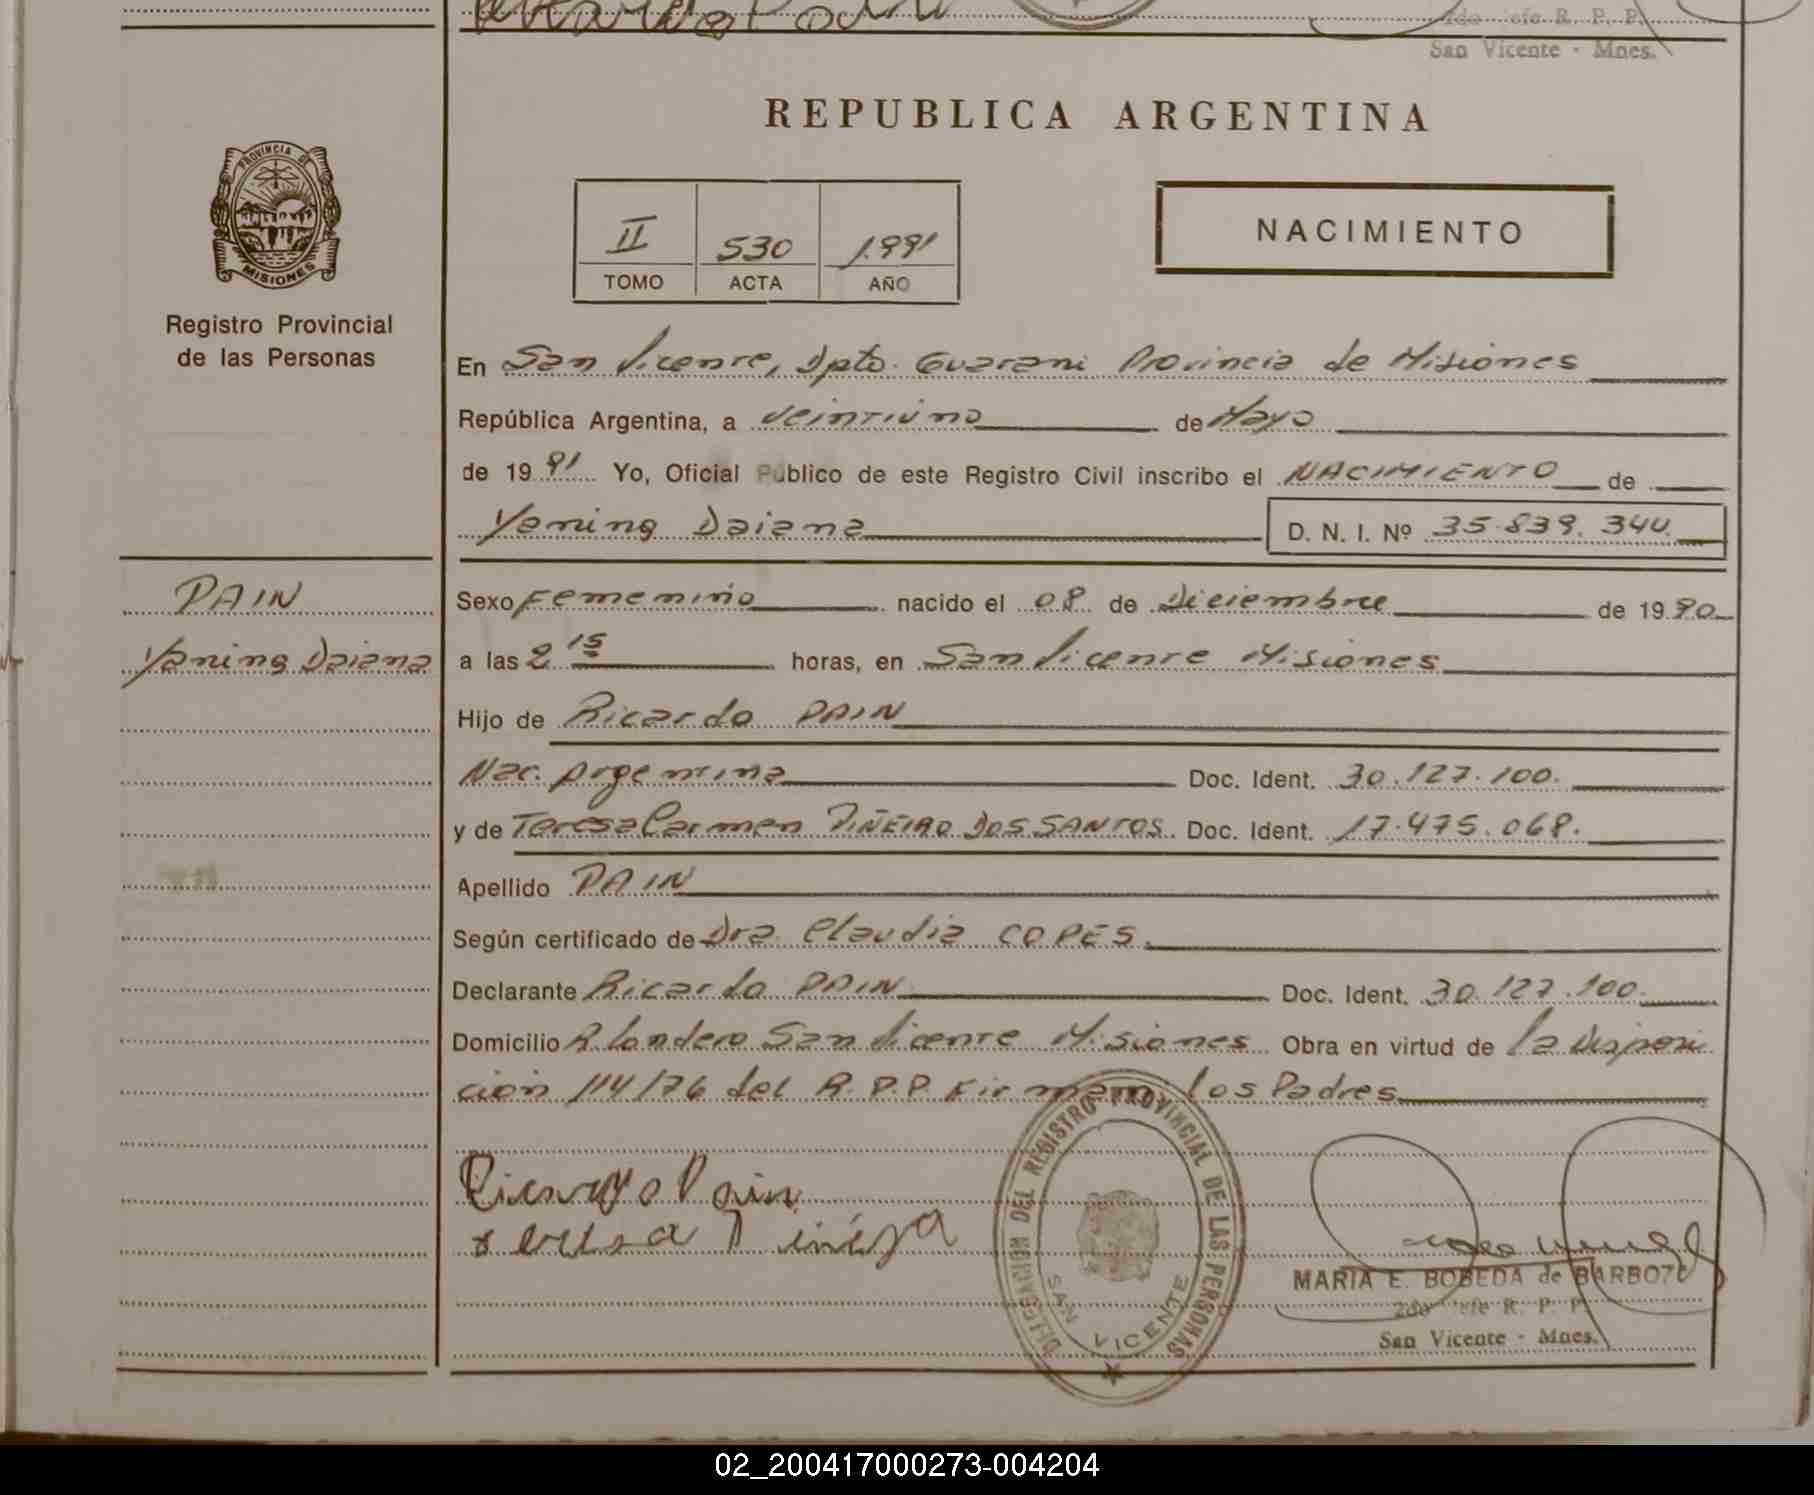 2do Jefe R. P. P.
San Vicente - Mnes.
REPUBLICA ARGENTINA
PROVINCIA DE
MISIONES
Registro Provincial
de las Personas
II 530 1.991
TOMO ACTA AÑO
NACIMIENTO
En San Vicente, Dpto. Guarani Provincia de Misiones
República Argentina, a veintiuno de Mayo
de 19 91 Yo, Oficial Público de este Registro Civil inscribo el NACIMIENTO de
Yanina Daiana D. N. I. Nº 35.839.340.
PAIN
Yanina Daiana
Sexo Femenino nacido el 08 de Diciembre de 19 90
a las 2 15 horas, en San Vicente Misiones
Hijo de Ricardo PAIN
Nac. Argentina Doc. Ident. 30.127.100.
y de Teresa Carmen PIÑEIRO DOS SANTOS. Doc. Ident. 17.475.068.
Apellido PAIN
Según certificado de Dra. Claudia COPES.
Declarante Ricardo PAIN Doc. Ident. 30.127.100.
Domicilio San Vicente Misiones Obra en virtud de la Disposi
ción 114/76 del R.P.P. Firman los Padres
Ricardo Pain
DELEGACION DEL REGISTRO PROVINCIAL DE LAS PERSONAS
SAN VICENTE
MARIA E. BOBEDA de BARBOZA
2do Jefe R. P. P.
San Vicente - Mnes.
02_200417000273-004204